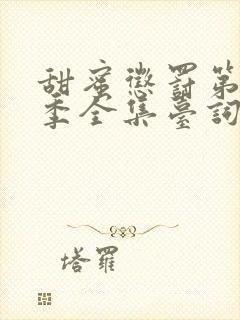 甜蜜懲罰第
季全集臺詞
塔羅